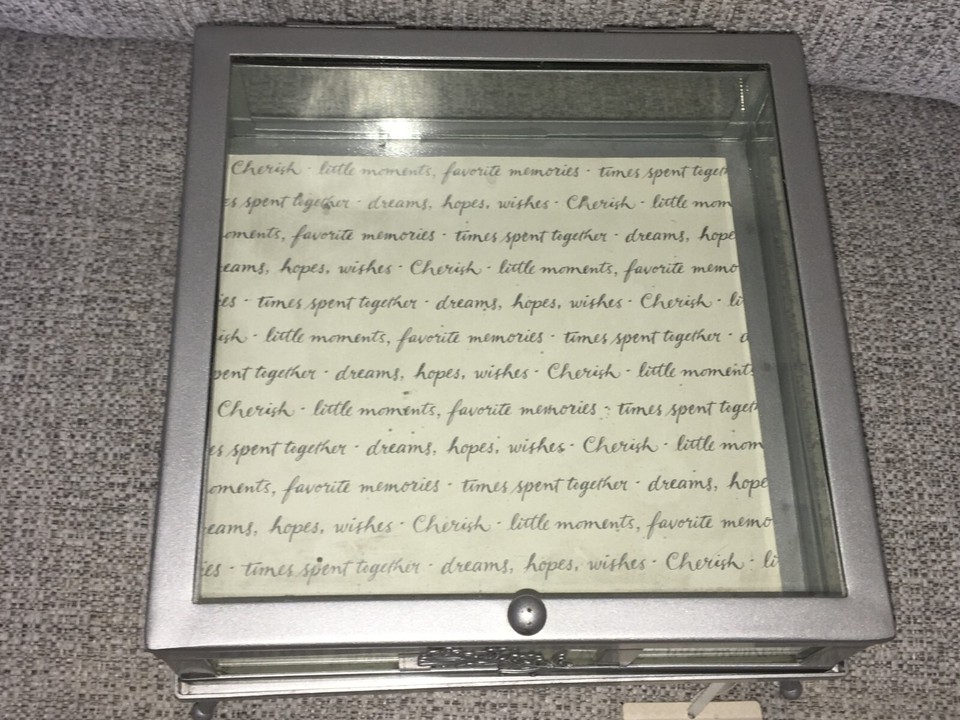 Cherish · little moments, favorite memories · times spent toget
es spent together · dreams, hopes, wishes · Cherish · little mom
oments, favorite memories · times spent together · dreams, hope
eams, hopes, wishes · Cherish · little moments, favorite memo
es · times spent together · dreams, hopes, wishes · Cherish · li
ish · little moments, favorite memories · times spent together · d
pent together · dreams, hopes, wishes · Cherish · little moments
Cherish · little moments, favorite memories · times spent toget
es spent together · dreams, hopes, wishes · Cherish · little mom
oments, favorite memories · times spent together · dreams, hope
eams, hopes, wishes · Cherish · little moments, favorite memo
es · times spent together · dreams, hopes, wishes · Cherish · li